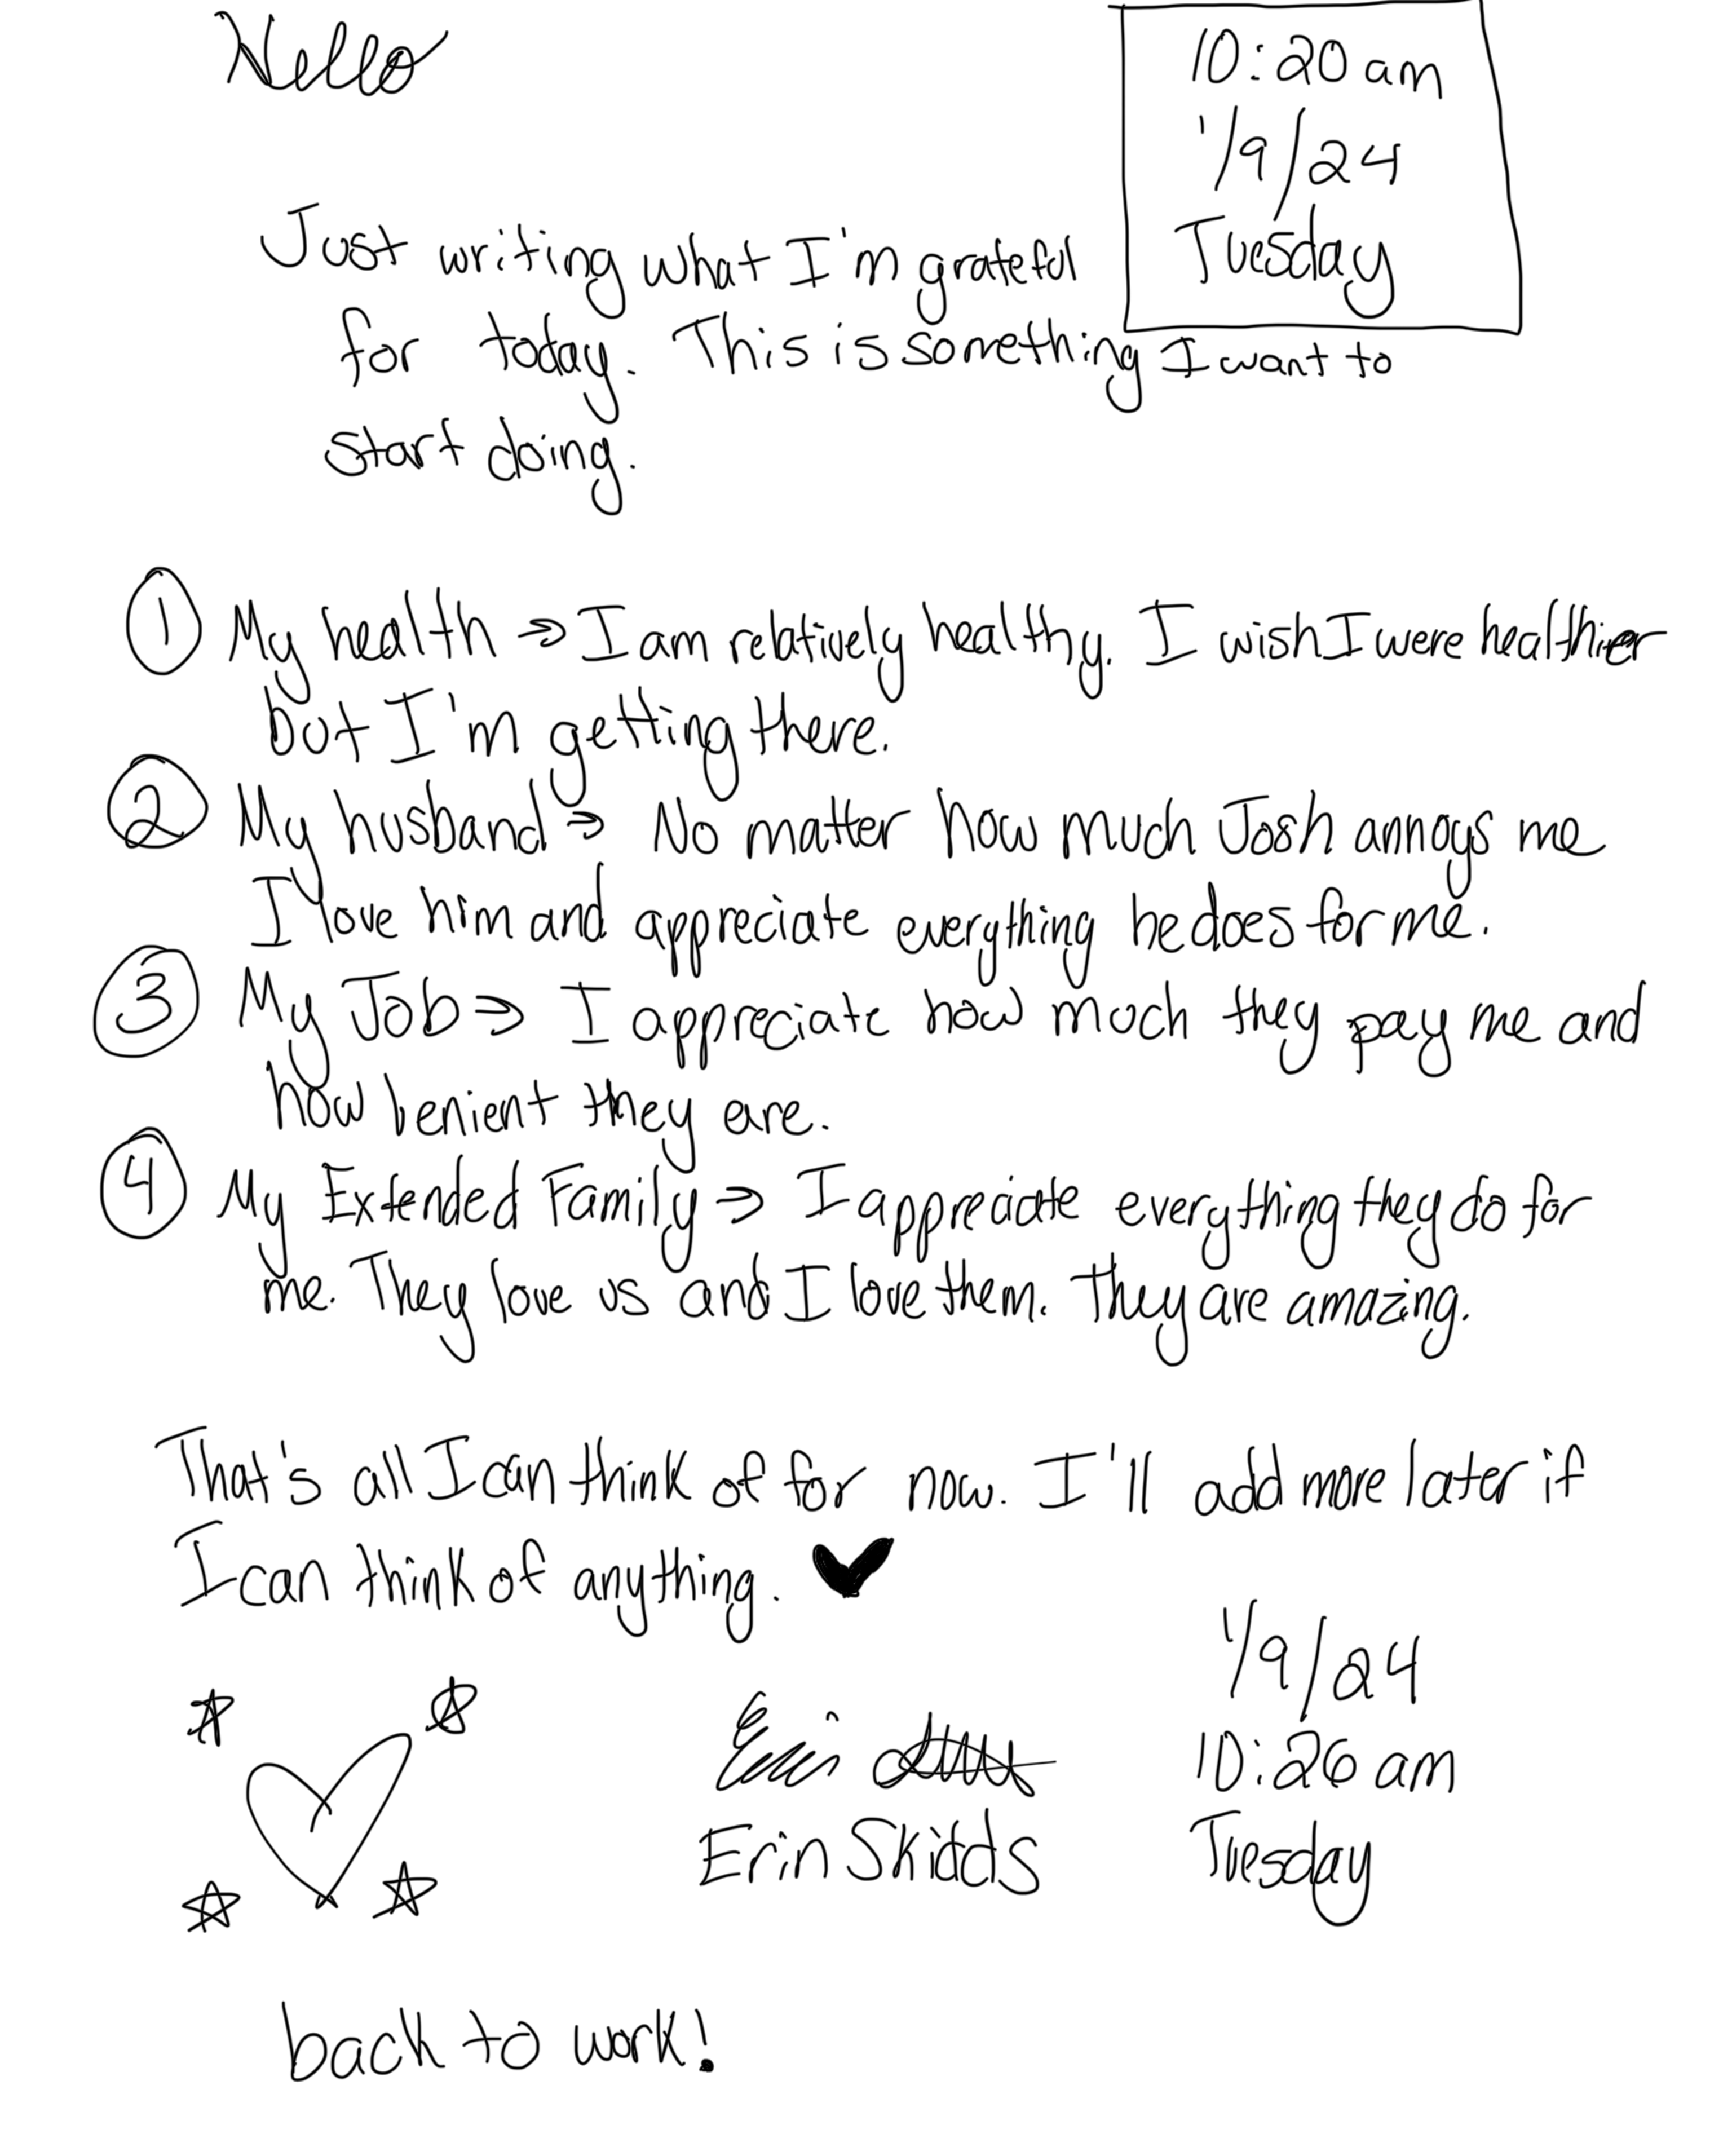 Hello
10:20 am
1/9/24
Tuesday
Just writing what I'm grateful
for today. This is something I want to
start doing.
① My health ⇒ I am relatively healthy. I wish I were healthier
but I'm getting there.
② My husband ⇒ No matter how much Josh annoys me
I love him and appreciate everything he does for me.
③ My Job ⇒ I appreciate how much they pay me and
how lenient they are.
④ My Extended Family ⇒ I appreciate everything they do for
me. They love us and I love them. They are amazing.
That's all I can think of for now. I'll add more later if
I can think of anything. ♥
1/9/24
10:26 am
Tuesday
Erin
Erin
back to work!